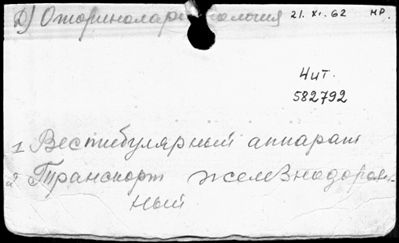 D) Оториноларингология 21.XI.62 НР.
Чит.
582792
1 Вестибулярный аппарат
2 Транспорт железнодорож-
ный